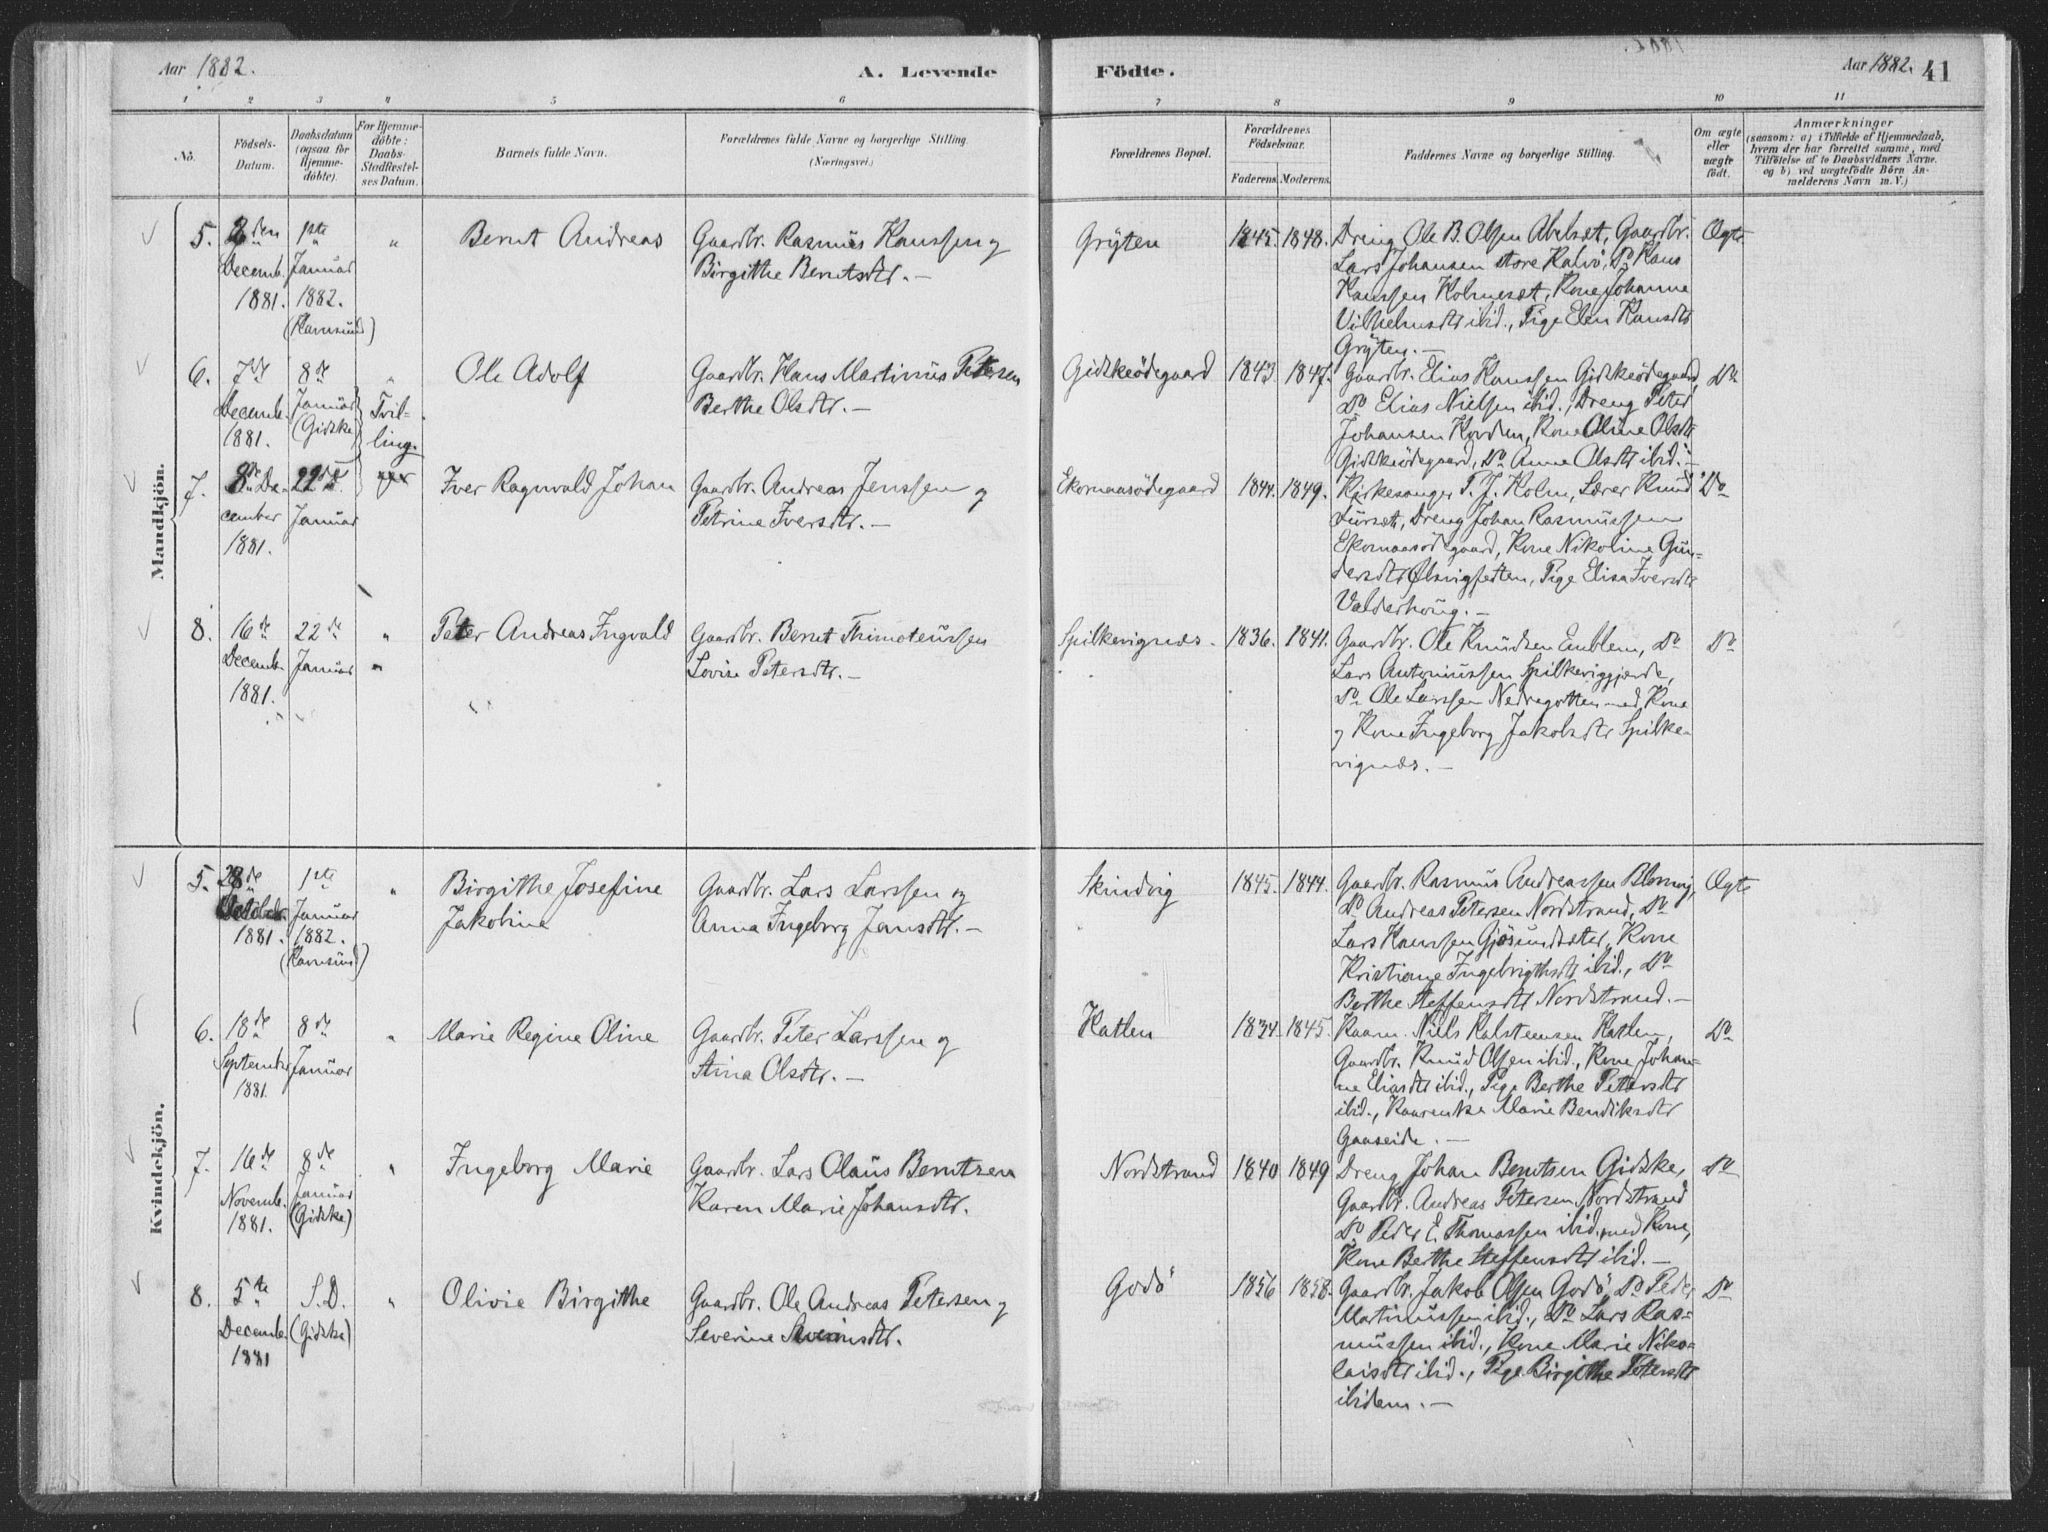 Aar 1882.
A. Levende
Födte.
Aar 1882. 41
1 2 3 4 5 6 7 8 9 10 11
No.
Födsels-
Datum.
Daabsdatum
(ogsaa for
Hjemme-
döbte).
For Hjemme-
döbte:
Daabs-
Stadfæstel-
ses Datum.
Barnets fulde Navn.
Forældrenes fulde Navne og borgerlige Stilling
(Næringsvei.)
Forældrenes Bopæl.
Forældrenes
Födselsaar.
Faderens. Moderens.
Faddernes Navne og borgerlige Stilling.
Om ægte
eller
uægte
födt.
Anmærkninger
(saasom: a) i Tilfælde af Hjemmedaab,
hvem der har forrettet samme, med
Tilföielse af to Daabsvidners Navne.
og b) ved uægtefödte Börn An-
melderens Navn m. V.)
Mandkjön.
5.
2den
Decemb.
1881.
1ste
Januar
1882.
(Hamsund)
"
Bernt Andreas
Gaardbr. Rasmus Hanssen og
Birgithe Berntsdtr. —
Gryten
1845. 1848.
Dreng Ole B. Olsen Abelsæt, Gaardbr.
Lars Johansen store Kalvö, Do Hans
Hanssen Holmesæt, Kone Johanne
Vilhelmsdtr ibid., Pige Elen Hansdtr
Gryten. —
Ægte
6.
7de
Decemb.
1881.
8de
Januar
(Gidske)
"
Tvil-
ling.
Ole Adolf
Gaardbr. Hans Martinus Petersen
Berthe Olsdtr. —
Gidskeödegaard
1843 1847.
Gaardbr. Elias Hanssen Gidskeödegaard,
Do Elias Nielsen ibid., Dreng Peter
Johansen Hovden, Kone Oline Olsdtr
Gidskeödegaard, Do Anne Olsdtr ibid. —
Do
7.
8de De-
cember
1881.
22de
Januar
Iver Ragnvald Johan
Gaardbr. Andreas Jenssen og
Petrine Iversdtr. —
Ekornaasödegaard
1844. 1849.
Kirkesanger P. J. Holm, Lærer Knud
Aursæt, Dreng Johan Rasmussen
Ekornaasödegaard, Kone Nikoline Gun-
dersdtr Ølsvigjetten, Pige Elisa Iversdtr
Valderhoug. —
Do
8.
16de
Decemb.
1881.
22de
Januar
"
Peter Andreas Ingvald
Gaardbr. Bernt Thimoteussen
Lovise Petersdtr. —
Spilkevignæs.
1836. 1841.
Gaardbr. Ole Knudsen Emblem, Do
Lars Antoniussen Spilkeviggjerde,
Do Ole Larssen Nedregotten med Kone
og Kone Ingeborg Jakobsdtr Spilke-
vignæs. —
Do
Kvindekjön.
5.
28de
October.
1881.
1ste
Januar
1882.
(Hamsund)
"
Birgithe Josefine
Jakobine
Gaardbr. Lars Larssen og
Anna Ingeborg Jensdtr. —
Skindvig
1845. 1844.
Gaardbr. Rasmus Andreassen Blomvig,
Do Andreas Petersen Nordstrand, Do
Lars Hanssen Gjösundsæter, Kone
Kristiane Ingebrigthsdtr ibid., Do
Berthe Steffensdtr Nordstrand. —
Ægte
6.
18de
September
1881.
8de
Januar
"
Marie Regine Oline
Gaardbr. Peter Larssen og
Stina Olsdtr. —
Hatlen
1834. 1845.
Kaarm. Niels Halstensen Hatlen,
Gaardbr. Knud Olsen ibid., Kone Johan-
ne Eliasdtr ibid., Pige Berthe Petersdtr
ibid., Kaarenke Marie Bendiksdtr
Gaaseide. —
Do
7.
16de
Novemb.
1881.
8de
Januar
(Gidske)
"
Ingeborg Marie
Gaardbr. Lars Olaus Berntsen
Karen Marie Johansdtr.
Nordstrand
1840 1849
Dreng Johan Berntsen Gidske,
Gaardbr. Andreas Petersen Nordstrand
Do Peder E. Thomassen ibid. med Kone,
Kone Berthe Steffensdtr ibid. —
Do
8.
5te
Decemb.
1881
S.D.
(Gidske)
"
Olivie Birgithe
Gaardbr. Ole Andreas Petersen og
Severine Severinsdtr.
Godö
1856 1858.
Gaardbr. Jakob Olsen Godö, Do Peder
Martinussen ibid., Do Lars Ras-
mussen ibid., Kone Marie Niko-
laisdtr ibid., Pige Birgithe Petersdtr
ibidem. —
Do